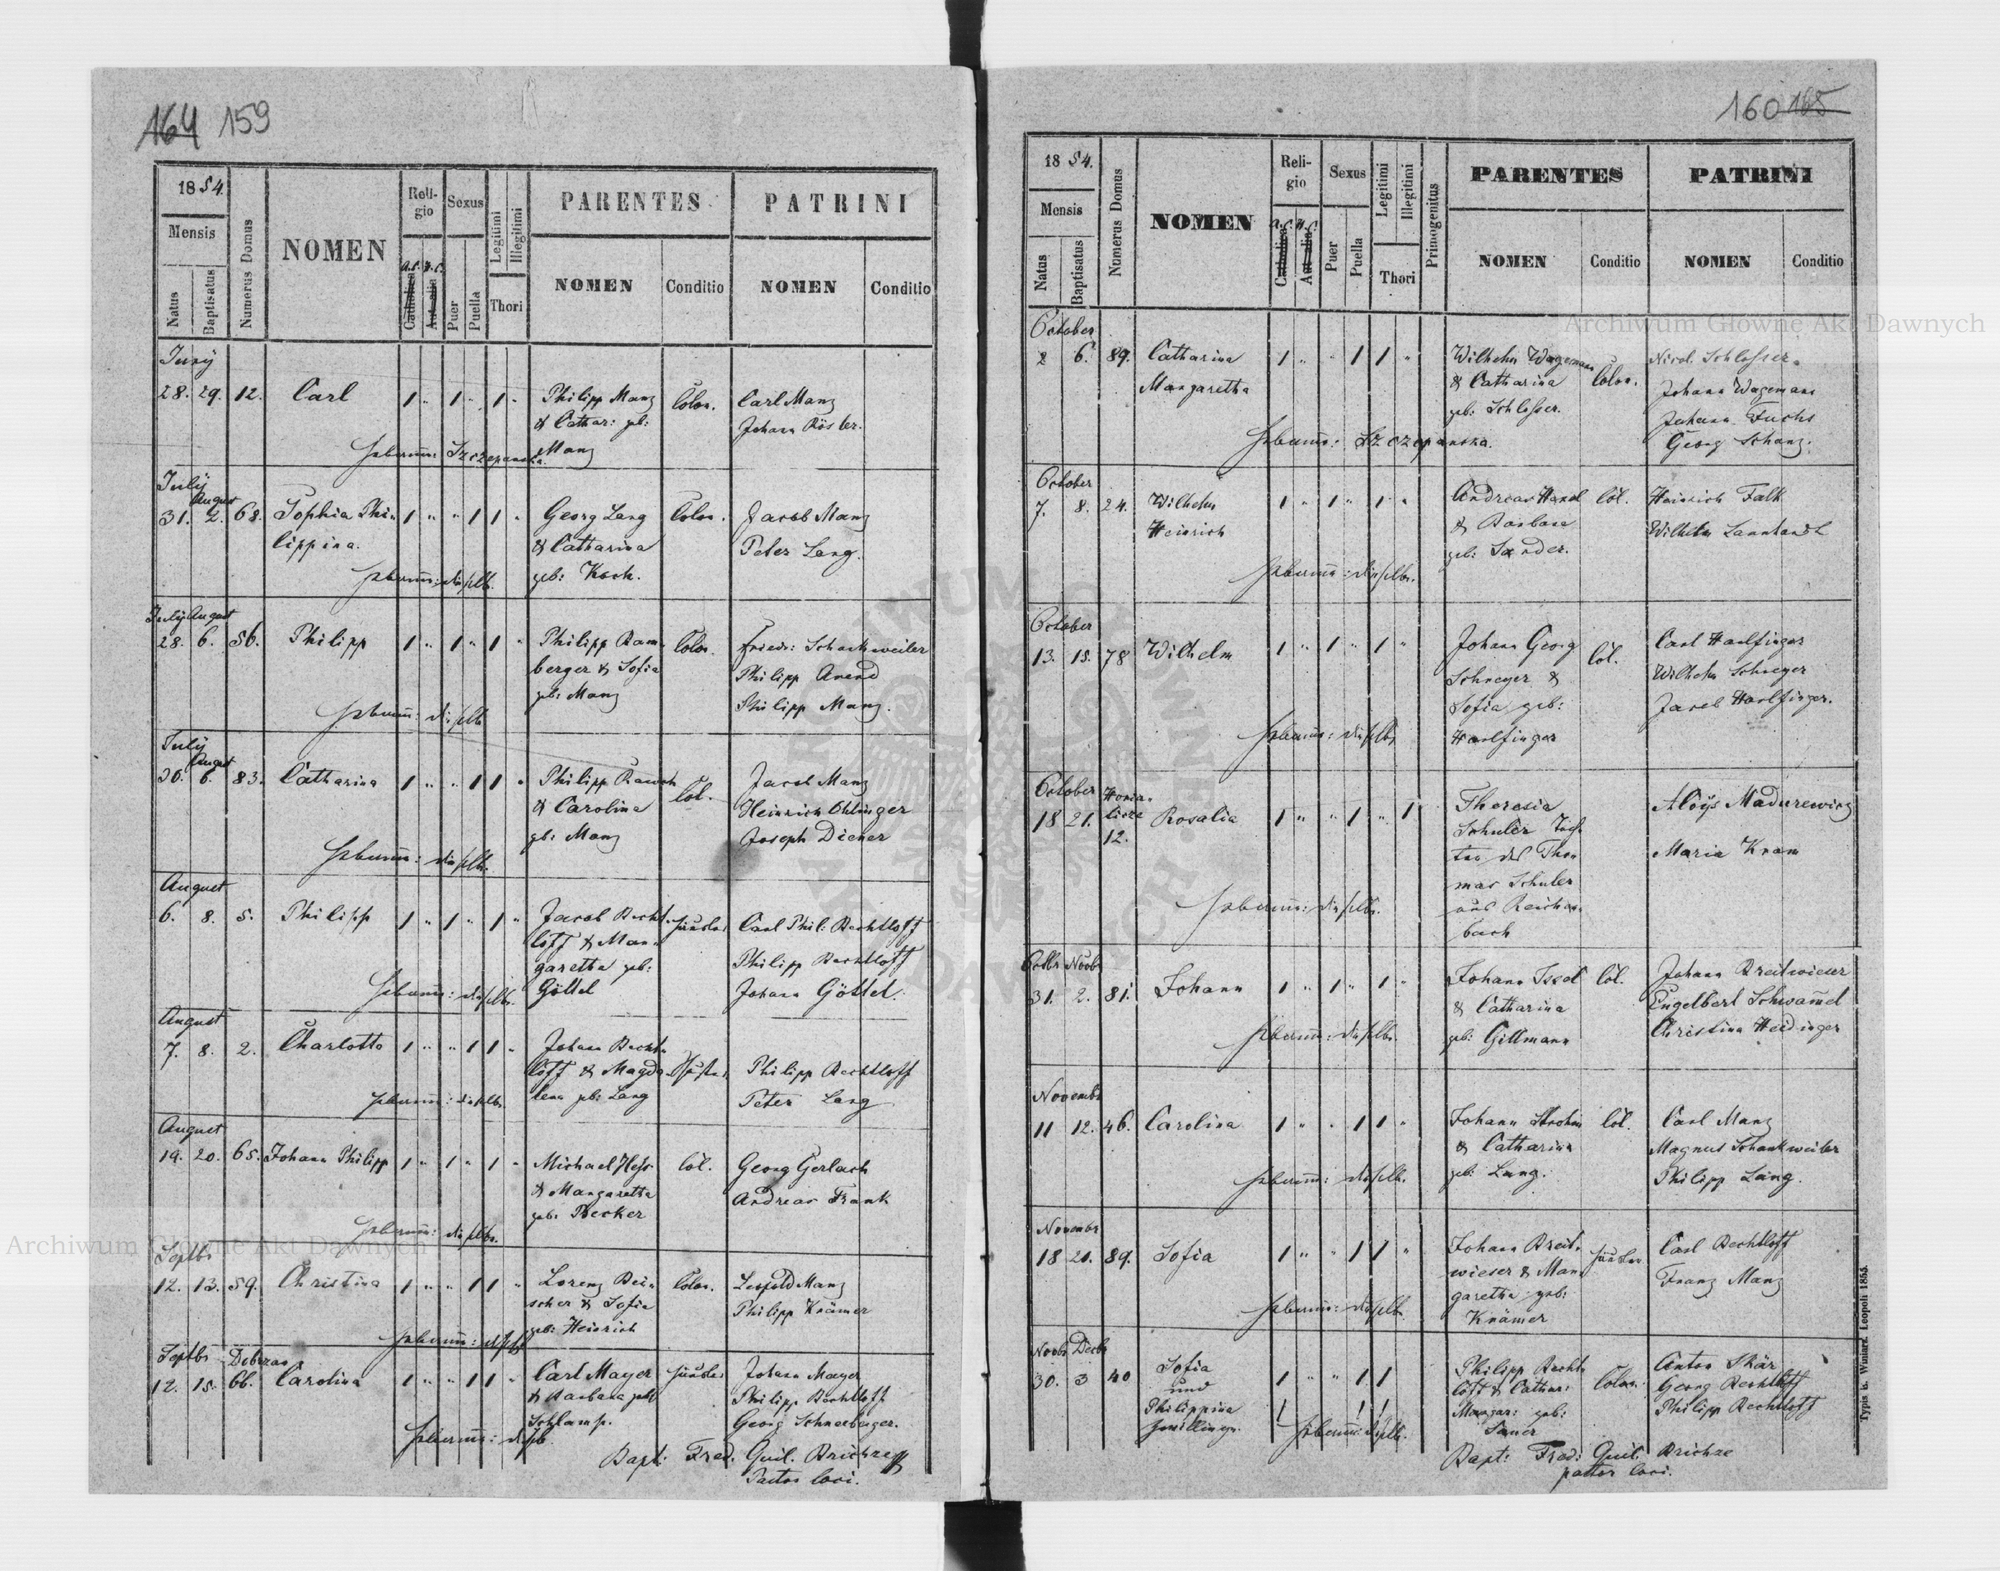 164 159
1854.
Mensis
Natus
Baptisatus
Numerus Domus
NOMEN
Religio
A.C. H.C.
Catholica
Sexus
Puer
Puella
Legitimi
Illegitimi
Thori
PARENTES
NOMEN
Conditio
PATRINI
NOMEN
Conditio
July
28. 29. 12. Carl 1 " 1 " 1 " Philipp Manz Colon. Carl Manz
& Cathar: geb: Johann
Hebamme: Szczepanska. Manz
July August
31. 2. 68. Sophia Phi- 1 " " 1 1 " Georg Lang Colon. Jacob Manz
lippina. & Catharina Peter Lang.
Hebamme: dieselbe. geb: Koch.
July August
28. 6. 56. Philipp 1 " 1 " 1 " Philipp Bam- Colon. Friedr: Schankweiler
berger & Sofia Philipp Arend
geb: Manz Philipp Manz.
Hebamme: dieselbe
July August
30. 6. 83. Catharina 1 " " 1 1 " Philipp Rauch Col. Jacob Manz
& Carolina Heinrich Ohlinger
geb: Manz Joseph Diener
Hebamme: dieselbe.
August
6. 8. 5. Philipp 1 " 1 " 1 " Jacob Becht- Carl Phil: Bechtloff
loff & Mar- Philipp Bechtloff
garetha geb: Johann Göttel.
Hebamme: dieselbe. Göttel
August
7. 8. 2. Charlotte 1 " " 1 1 " Johann Becht-
loff & Magda- Philipp Bechtloff
Hebamme: dieselbe. lena geb: Lang Peter Lang
August
19. 20. 65. Johann Philipp 1 " 1 " 1 " Michael Hess Col. Georg Gerlach
& Margaretha Andreas Frank
geb: Becker
Hebamme: dieselbe.
Septbr
12. 13. 59. Christina 1 " " 1 1 " Lorenz Bei- Colon. Leopold Manz
scher & Sofia Philipp Krämer
geb: Heinrich
Hebamme: dieselbe
Septbr
12. 15. 66. Carolina 1 " " 1 1 " Carl Mayer Johann Mayer
& Barbara geb: Philipp Bechtloff
Schlamp. Georg Schneeberger.
Hebamme: dieselbe
Bapt: Fred. Guil. Brichze
Pastor loci.
160 165
1854.
Mensis
Natus
Baptisatus
Numerus Domus
NOMEN
Religio
A.C. H.C.
Catholica
Sexus
Puer
Puella
Legitimi
Illegitimi
Thori
Primogenitus
PARENTES
NOMEN
Conditio
PATRINI
NOMEN
Conditio
October
2 6. 89. Catharina 1 " " 1 1 " Wilhelm Wagemann Colon. Nicol. Schlosser
Margaretha & Catharina Johann Wagemann
geb: Schlosser. Johann Fuchs
Hebamme: Szczepanska. Georg Schanz.
October
7. 8. 24. Wilhelm 1 " 1 " 1 " Andreas Col. Heinrich Falk
Heinrich & Barbara Wilhelm
geb: Sander.
Hebamme: dieselbe.
October
13. 15. 78 Wilhelm 1 " 1 " 1 " Johann Georg Col. Carl Harlfinger
Schreyer & Wilhelm Schreyer
Sofia geb: Jacob Harlfinger.
Hebamme: dieselbe Harlfinger
October
18 21. 12. Rosalia 1 " " 1 " 1 Theresia Aloÿs Madurewicz
Schuler Toch-
ter des Tho- Maria Kram
mas Schuler
Hebamme: dieselbe. aus Reichen-
bach
Octbr Novbr
31. 2. 81. Johann 1 " 1 " 1 " Johann Issel Col. Johann Breitwieser
& Catharina Engelbert Schwamel
Hebamme: dieselbe. geb: Gillmann Christina Heidinger
Novembr
11 12. 46. Carolina 1 " " 1 1 " Johann Strohm Col. Carl Manz
& Catharina Magnus Schankweiler
Hebamme: dieselbe. geb: Lang. Philipp Lang.
Novembr
18 21. 89. Sofia 1 " " 1 1 " Johann Breit- Carl Bechtloff
wieser & Mar- Franz Manz
garetha geb:
Hebamme: dieselbe Krämer
Novbr Decbr
30. 3 40 Sofia 1 " " 1 1 Philipp Becht- Colon. Anton Skär
und loff & Cathar: Georg Bechtloff
Philippina Margar: geb: Philipp Bechtloff
Zwillinge. Hebamme: dieselbe. Sauer
Bapt: Fred: Guil. Brichze
pastor loci.
Typis E. Winiarz Leopoli 1853.
Archiwum Główne Akt Dawnych
Archiwum Główne Akt Dawnych
ARCHIWUM GŁÓWNE AKT DAWNYCH